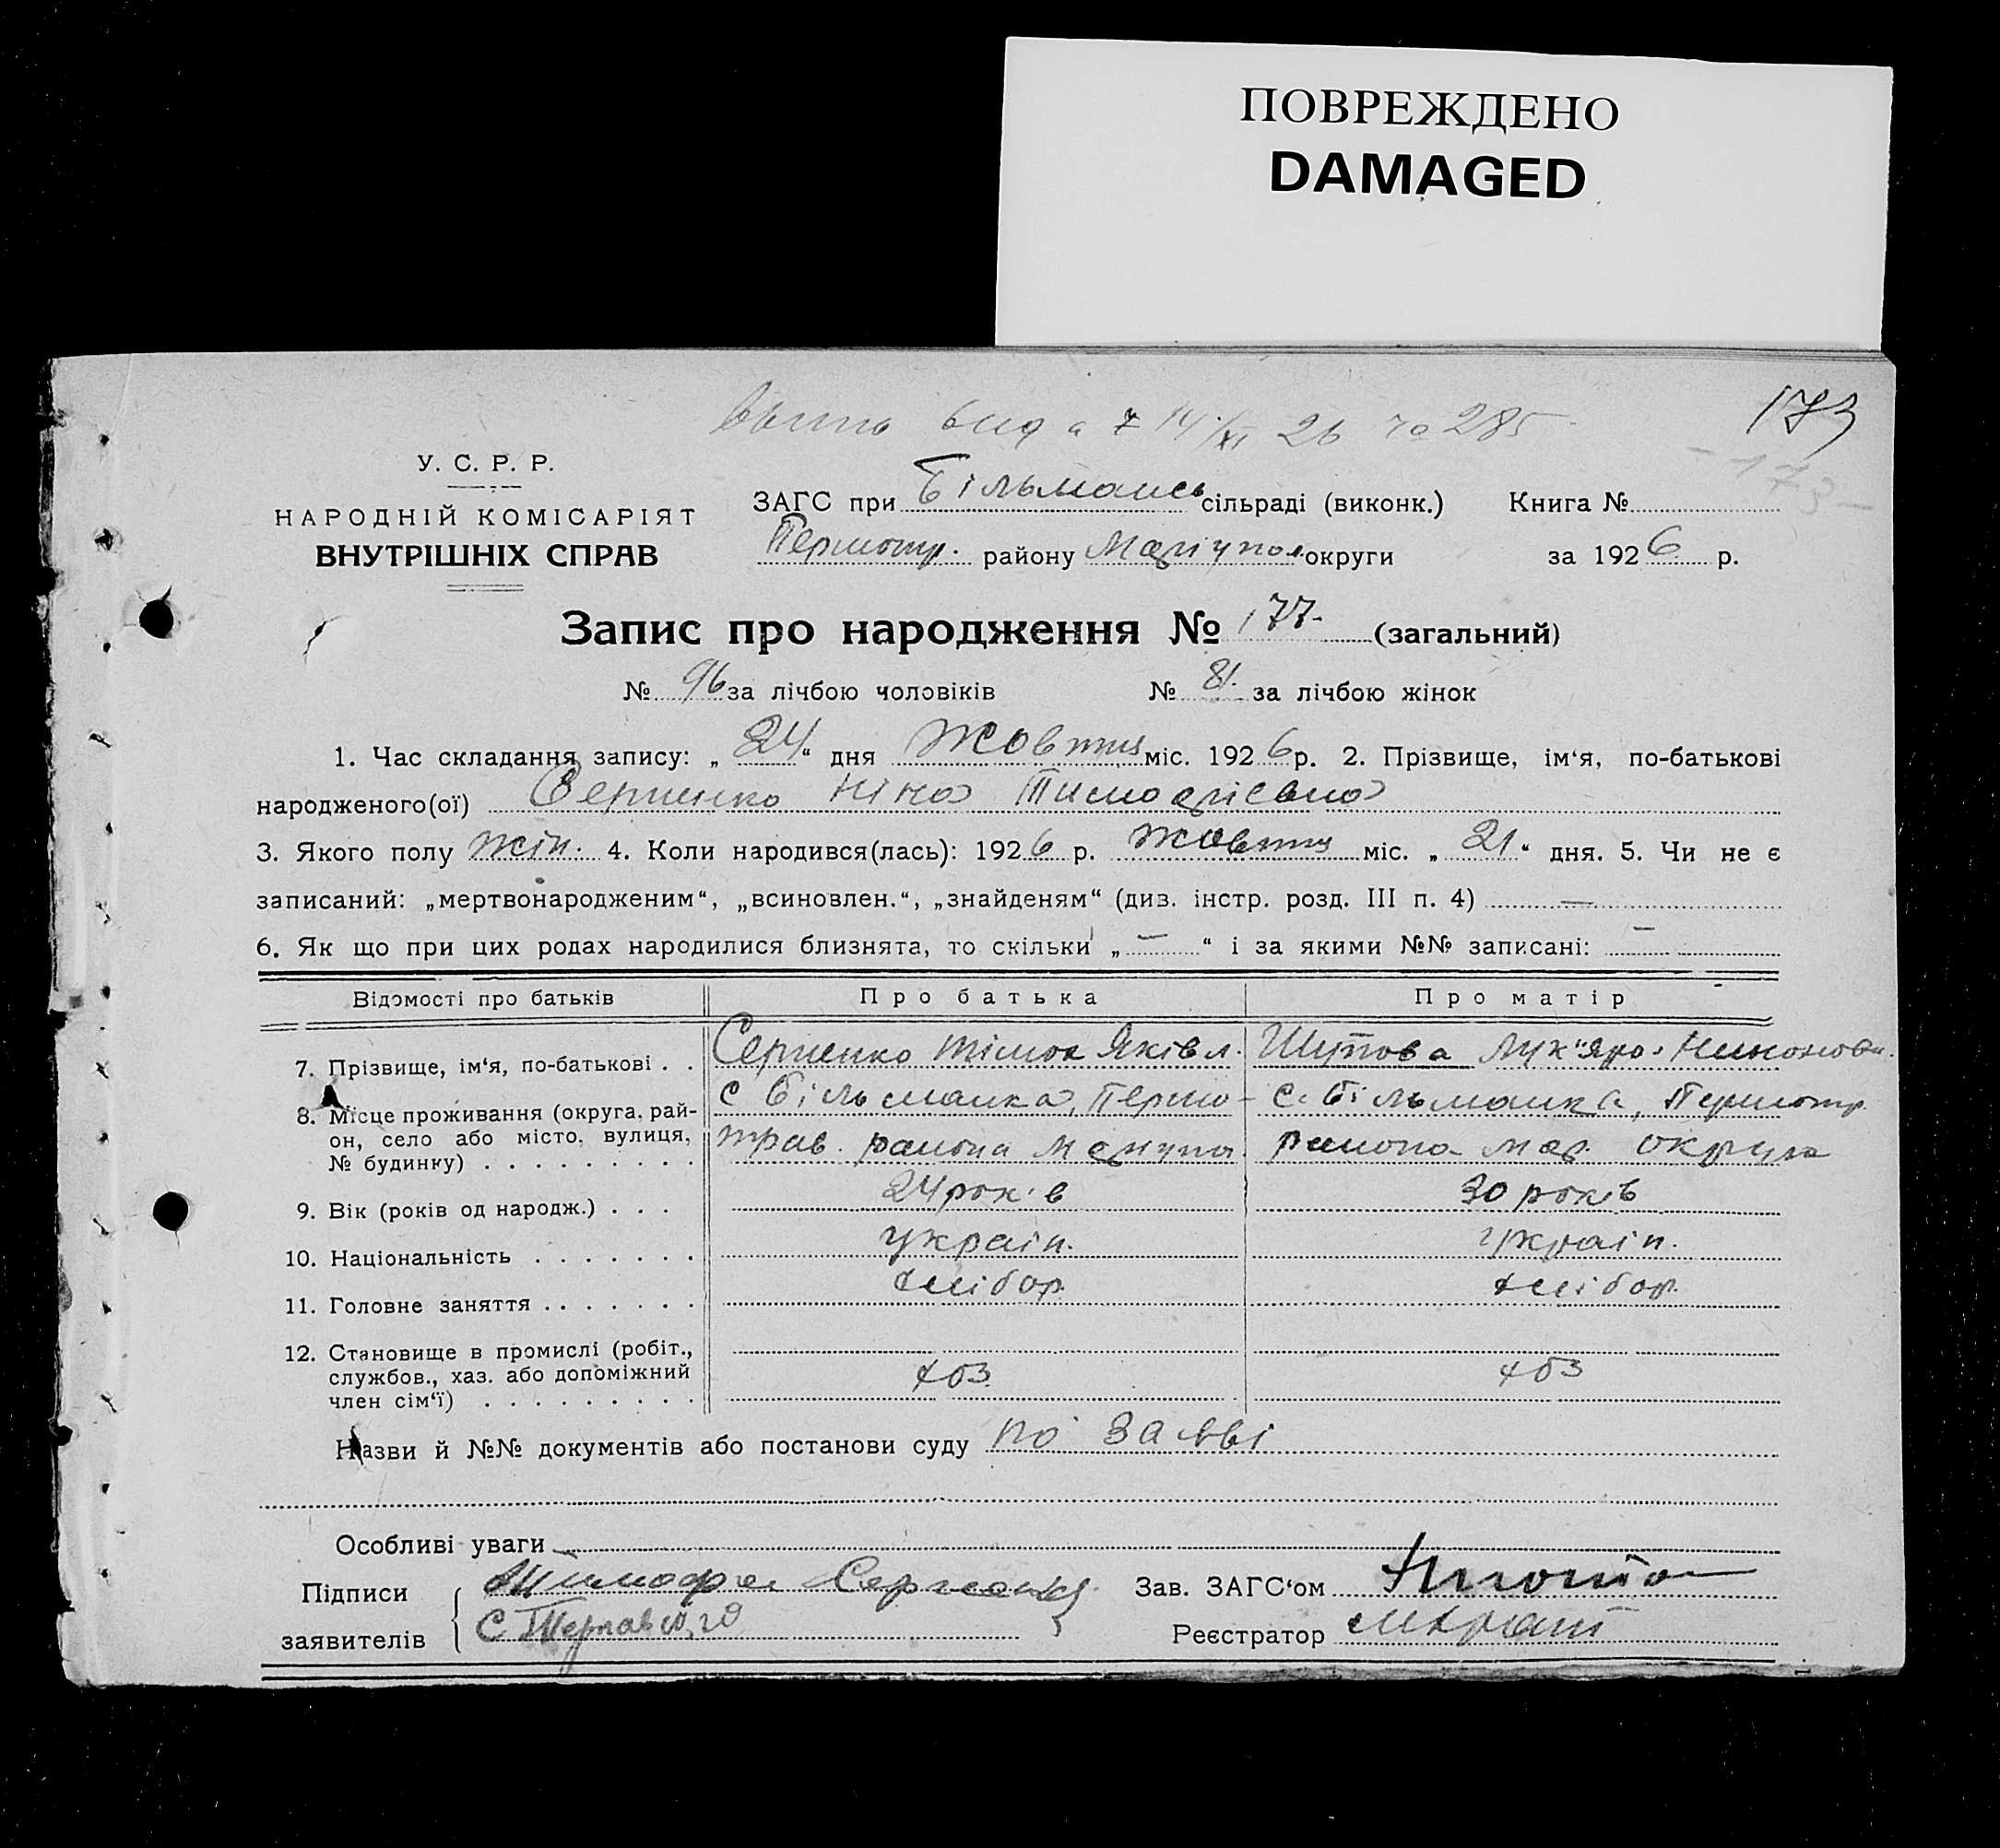 ПОВРЕЖДЕНО
DAMAGED
173
14/XI 26 285
- 173 -
У. С. Р. Р.
НАРОДНІЙ КОМІСАРІЯТ
ВНУТРІШНІХ СПРАВ
ЗАГС при Більмансь сільраді (виконк.) Книга №
Першотр. району Маріупол. округи за 1926 р.
Запис про народження № 177. (загальний)
№ 96 за лічбою чоловіків № 81. за лічбою жінок
1. Час складання запису: „ 24 “ дня Жовтня міс. 1926 р. 2. Прізвище, ім‘я, по-батькові
народженого(ої) Серпенко Ніна
3. Якого полу жін. 4. Коли народився(лась): 1926 р. Жовтня міс. „ 21 “ дня. 5. Чи не є
записаний: „мертвонародженим“, „всиновлен.“, „знайденям“ (див. інстр. розд. III п. 4) —
6. Як що при цих родах народилися близнята, то скільки „ — “ і за якими №№ записані: —
Відомості про батьків Про батька Про матір
7. Прізвище, ім‘я, по-батькові . . Серпенко Яківл. Шутова
8. Місце проживання (округа, рай- с Більманка, Першо- с. Більманка, Першотр.
он, село або місто, вулиця, трав. района района Мар. округа
№ будинку) . . . . . . . . .
9. Вік (років од народж.) . . . 24 років 30 років
10. Національність . . . . . . . україн. україн.
11. Головне заняття . . . . . . . хлібор. хлібор.
12. Становище в промислі (робіт.,
службов., хаз. або допоміжний хоз хоз
член сім‘ї) . . . . . . . . .
Назви й №№ документів або постанови суду по заяві
Особливі уваги
Підписи Зав. ЗАГС‘ом
заявителів Реєстратор